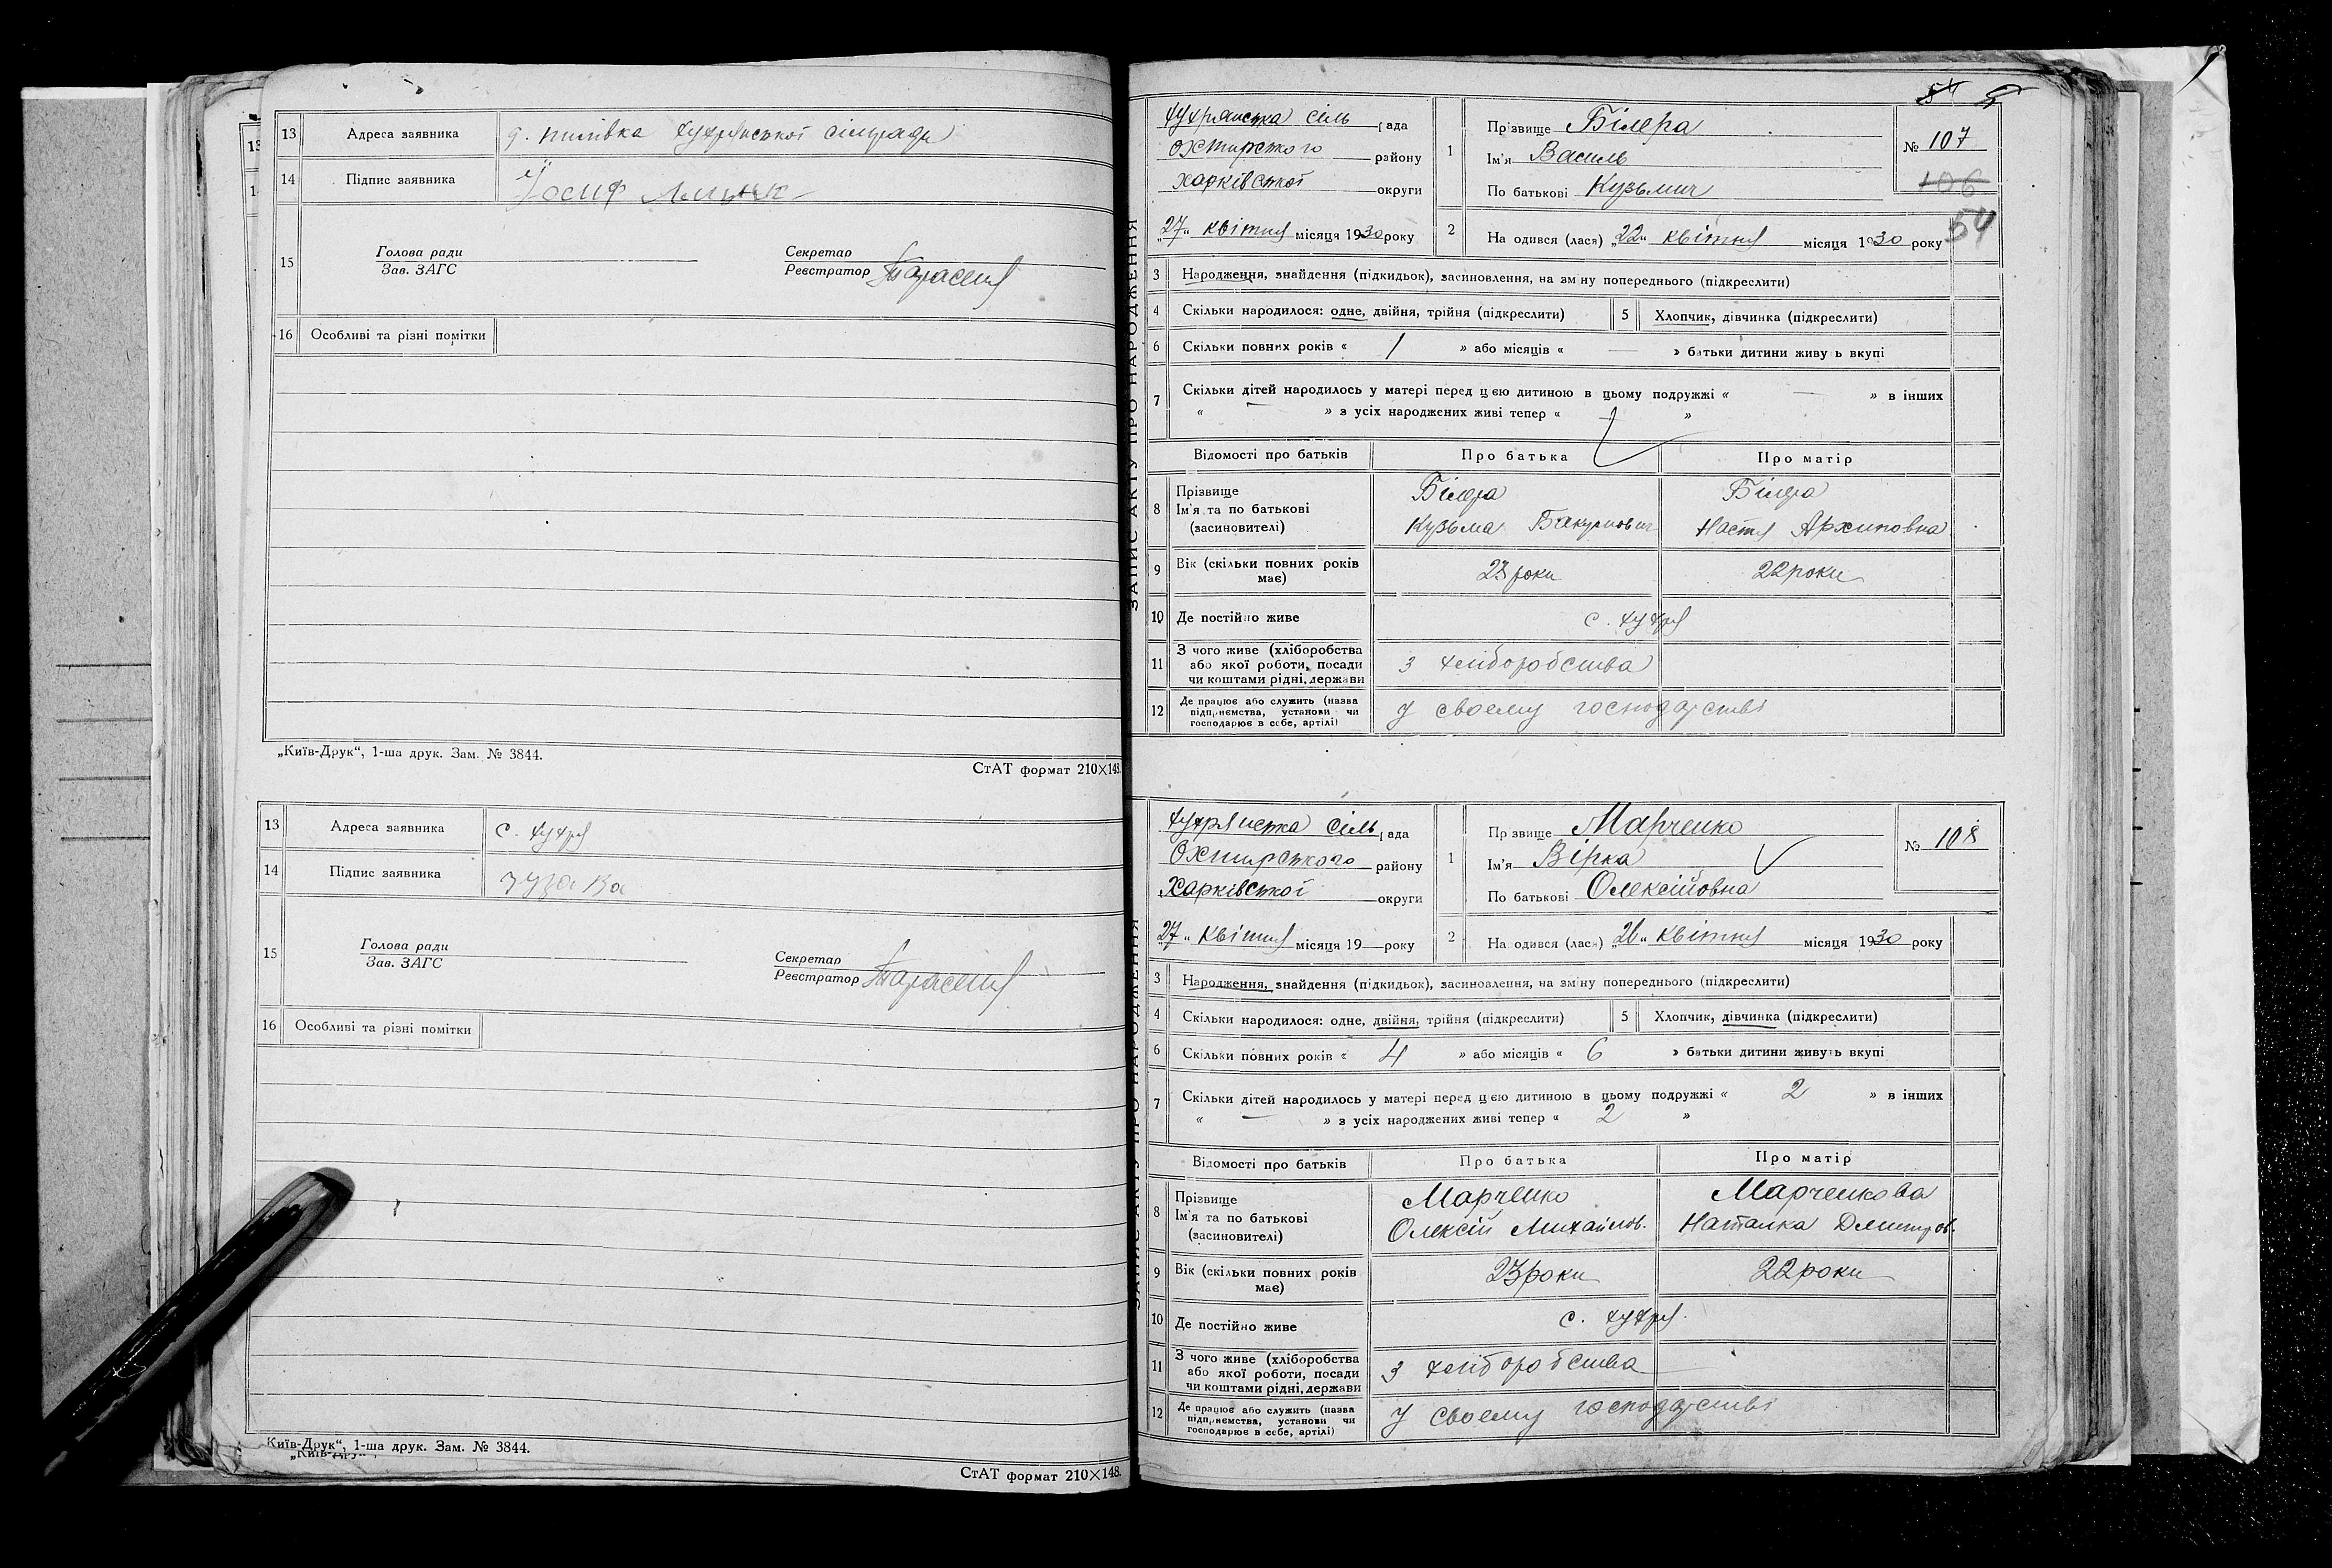 13 Адреса заявника
14 Підпис заявника Йосиф
15 Голова ради
Зав. ЗАГС
Секретар
Реєстратор
16 Особливі та різні помітки
„Київ-Друк“, 1-ша друк. Зам. № 3844.
СтАТ формат 210×148.
13 Адреса заявника с. Хухря
14 Підпис заявника
15 Голова ради
Зав. ЗАГС
Секретар
Реєстратор
16 Особливі та різні помітки
„Київ-Друк“, 1-ша друк. Зам. № 3844.
СтАТ формат 210×148.
54
ЗАПИС АКТУ ПРО НАРОДЖЕННЯ
Хухрянська сіль рада
Охтирского району
Харківської округи
„27“ квітня місяця 1930 року
1 Прізвище Білера
Ім'я Василь
По батькові Кузьмич
№ 107
106
54
2 Народився (лася) „22“ квітня місяця 1930 року
3 Народження, знайдення (підкидьок), засиновлення, на зміну попереднього (підкреслити)
4 Скільки народилося: одне, двійня, трійня (підкреслити) 5 Хлопчик, дівчинка (підкреслити)
6 Скільки повних років « 1 » або місяців « — » батьки дитини живуть вкупі
7 Скільки дітей народилось у матері перед цією дитиною в цьому подружжі « — » в інших
« — » з усіх народжених живі тепер « 1 »
Відомості про батьків Про батька Про матір
8 Прізвище
Ім'я та по батькові
(засиновителі)
Білера
Кузьма
Білера
Настя Архиповна
9 Вік (скільки повних років має) 23 роки 22 роки
10 Де постійно живе с. Хухря
11 З чого живе (хліборобства або якої роботи, посади чи коштами рідні, держави з хліборобства
12 Де працює або служить (назва підприємства, установи чи господарює в себе, артілі) у своему господарстві
Хухрянська сіль рада
Охтирського району
Харківської округи
„27“ квітня місяця 19— року
1 Прізвище Марченко
Ім'я Вірка
По батькові Олексійовна
№ 108
2 Народився (лася) „26“ квітня місяця 1930 року
3 Народження, знайдення (підкидьок), засиновлення, на зміну попереднього (підкреслити)
4 Скільки народилося: одне, двійня, трійня (підкреслити) 5 Хлопчик, дівчинка (підкреслити)
6 Скільки повних років « 4 » або місяців « 6 » батьки дитини живуть вкупі
7 Скільки дітей народилось у матері перед цією дитиною в цьому подружжі « 2 » в інших
« — » з усіх народжених живі тепер « 2 »
Відомості про батьків Про батька Про матір
8 Прізвище
Ім'я та по батькові
(засиновителі)
Марченко
Олексій Михайлов.
Марченкова
Наталка Дмитров.
9 Вік (скільки повних років має) 23 роки 22 роки
10 Де постійно живе с. Хухря
11 З чого живе (хліборобства або якої роботи, посади чи коштами рідні, держави з хліборобства
12 Де працює або служить (назва підприємства, установи чи господарює в себе, артілі) у своему господарстві